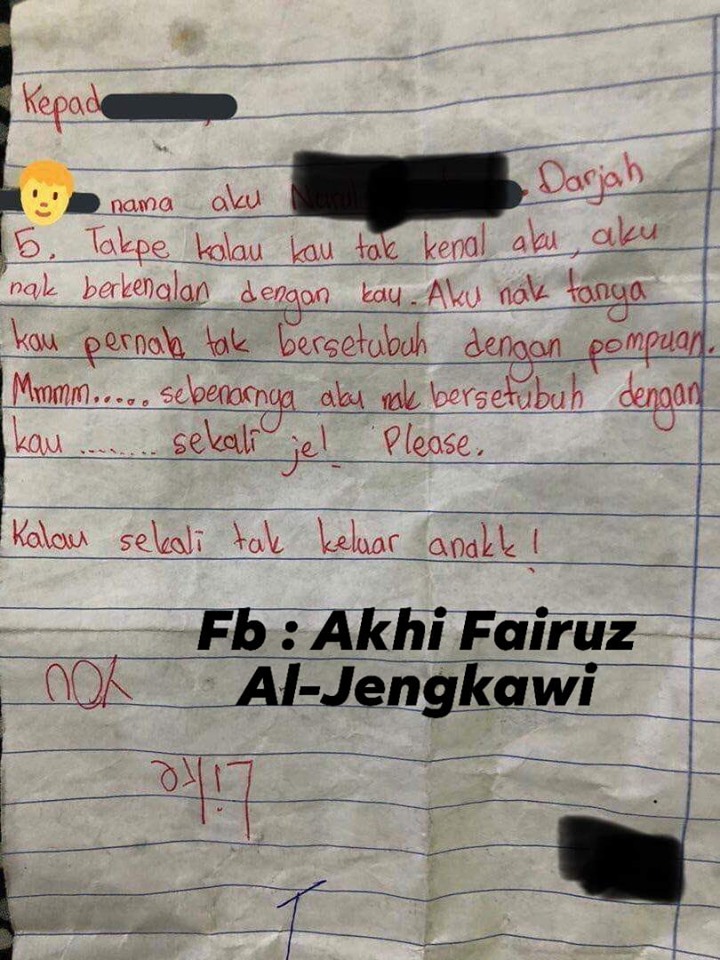 Kepad
nama aku Darjah
5. Takpe kalau kau tak kenal aku, aku
nak berkenalan dengan kau. Aku nak tanya
kau pernah tak bersetubuh dengan pompuan.
Mmmm..... sebenarnya aku nak bersetubuh dengan
kau ........ sekali je! Please.
Kalau sekali tak keluar anakk!
Fb : Akhi Fairuz
Al-Jengkawi
You
Like
I